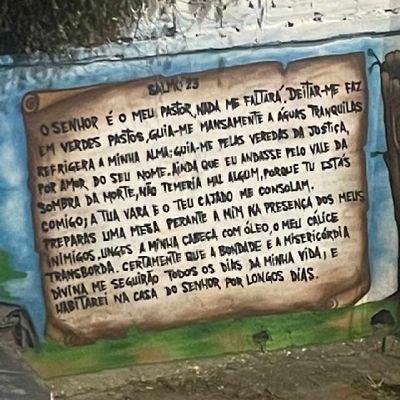 SALMO 23
O SENHOR É O MEU PASTOR, NADA ME FALTARÁ, DEITAR-ME FAZ
EM VERDES PASTOS, GUIA-ME MANSAMENTE A ÁGUAS TRANQUILAS
REFRIGERA A MINHA ALMA; GUIA-ME PELAS VEREDAS DA JUSTIÇA,
POR AMOR DO SEU NOME. AINDA QUE EU ANDASSE PELO VALE DA
SOMBRA DA MORTE, NÃO TEMERIA MAL ALGUM, PORQUE TU ESTÁS
COMIGO; A TUA VARA E O TEU CAJADO ME CONSOLAM.
PREPARAS UMA MESA PERANTE A MIM NA PRESENÇA DOS MEUS
INIMIGOS, UNGES A MINHA CABEÇA COM ÓLEO, O MEU CÁLICE
TRANSBORDA. CERTAMENTE QUE A BONDADE E A MISERICÓRDIA
DIVINA ME SEGUIRÃO TODOS OS DIAS DA MINHA VIDA; E
HABITAREI NA CASA DO SENHOR POR LONGOS DIAS.